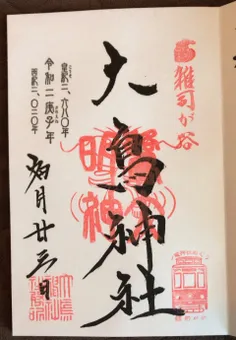 雑司が谷
大鳥神社
鷲明神
皇紀二、六八〇年
令和二庚子年
西紀二、〇二〇年
葉月廿三日